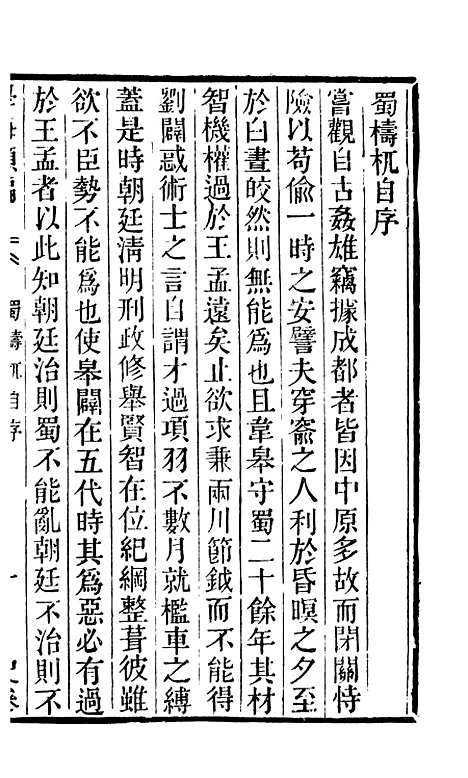 蜀檮杌自序
嘗觀自古姦雄竊據成都者皆因中原多故而閉關恃
險以苟偷一時之安譬夫穿窬之人利於昏暝之夕至
於白晝皎然則無能爲也且韋臯守蜀二十餘年其材
智機權過於王孟遠矣止欲求兼兩川節鉞而不能得
劉闢惑術士之言自謂才過項羽不數月就檻車之縛
蓋是時朝廷淸明刑政修舉賢智在位紀綱整葺彼雖
欲不臣勢不能爲也使臯闢在五代時其爲惡必有過
於王孟者以此知朝廷治則蜀不能亂朝廷不治則不
蜀檮杌自序
一